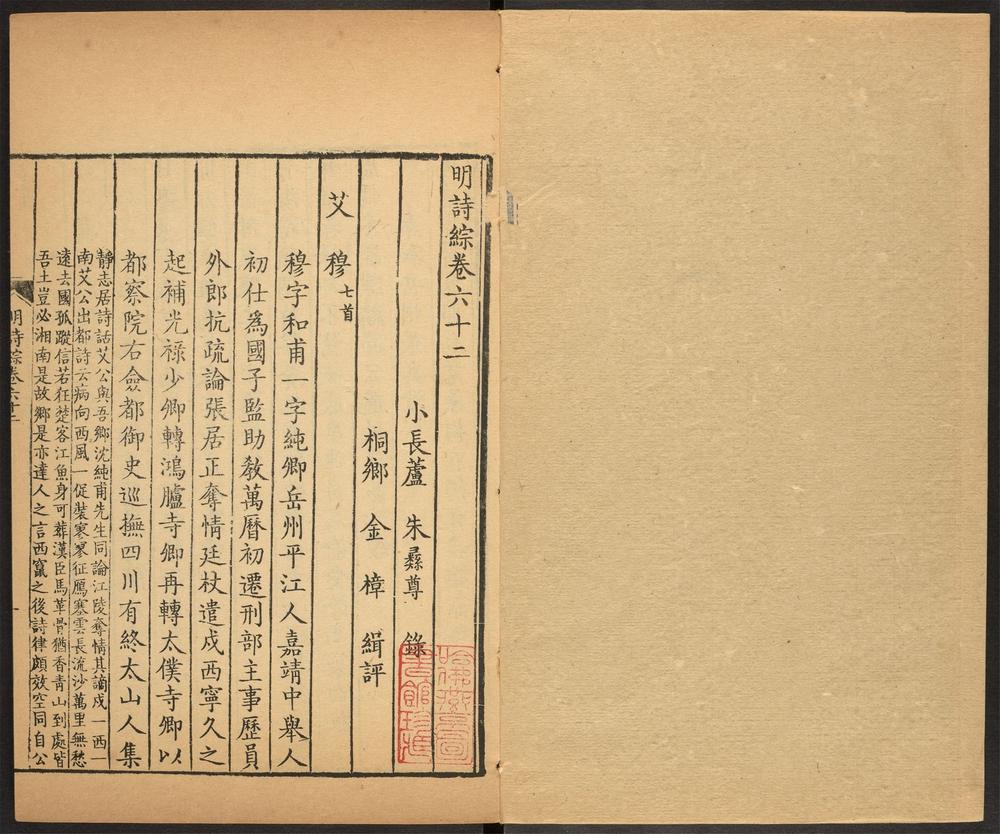 明詩綜卷六十二
小長蘆 朱彝尊 錄
桐鄉 金樟 緝評
艾穆七首
穆字和甫一字純卿岳州平江人嘉靖中舉人
初仕爲國子監助教萬曆初遷刑部主事歷員
外郎抗疏論張居正奪情廷杖遣戍西寧久之
起補光祿少卿轉鴻臚寺卿再轉太僕寺卿以
都察院右僉都御史巡撫四川有終太山人集
靜志居詩話艾公與吾鄉沈純甫先生同論江陵奪情其謫戍一西一
南艾公出都詩云病向西風一促裝寒寥征鴈塞雲長流沙萬里無愁
遠去國孤蹤信若狂楚客江魚身可葬漢臣馬革骨猶香靑山到處皆
吾土豈必湘南是故鄉是亦達人之言西竄之後詩律頗效空同自公
明詩綜卷六十二
一
哈佛燕京圖書館珍藏